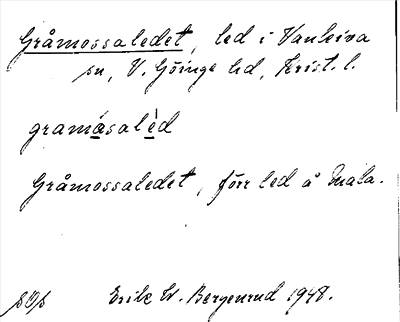 Gråmossaledet, led i Vankiva
sn, V. Göinge hd, Krist. l.
gramåsalèd
Gråmossaledet, förr led å Mala.
Erik W. Bergenrud 1948.